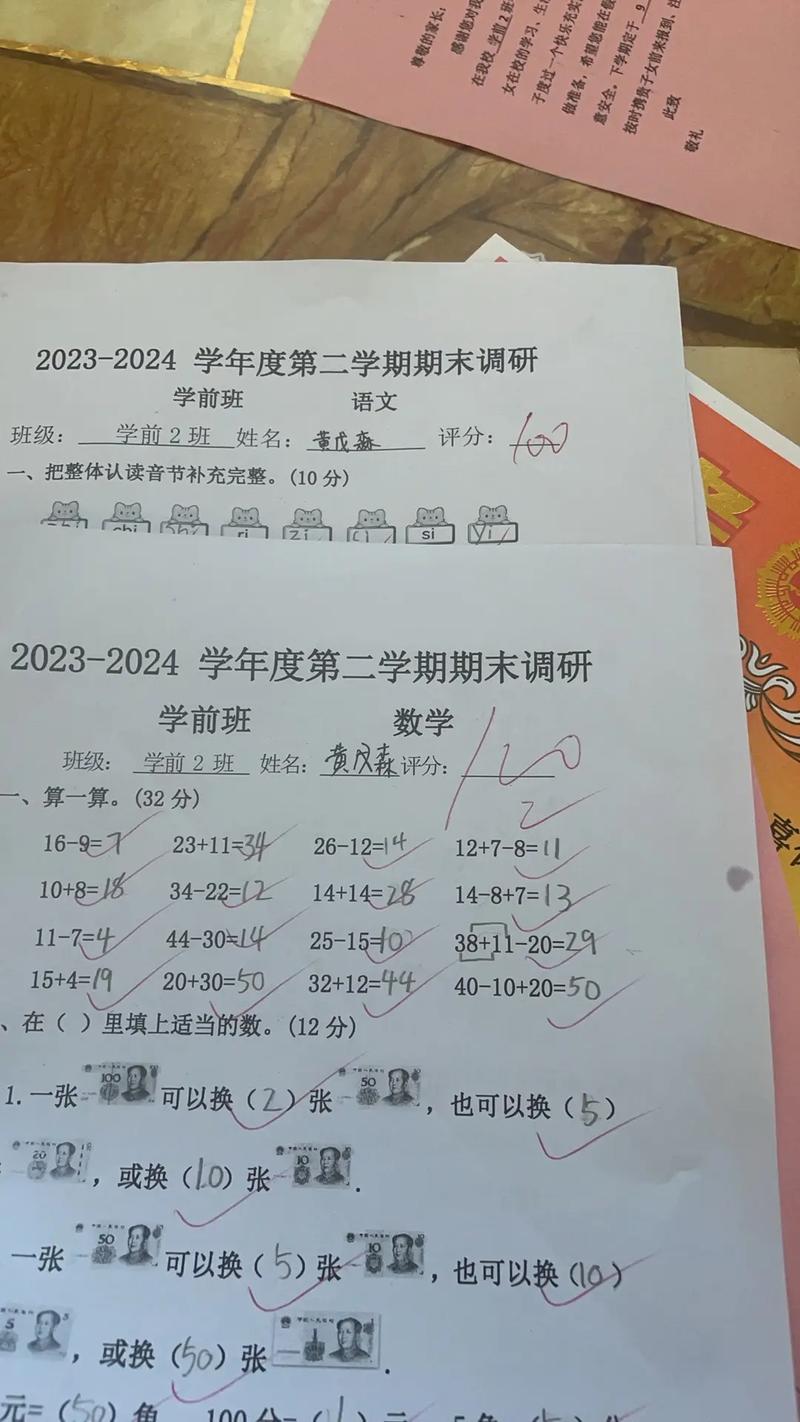 尊敬的家长：
感谢您对我
在我校 学前2班
女在校的学习、生
子度过一个快乐充实
做准备，希望您能在假
意安全。下学期定于 9
按时携贵子女前来报到、注
此致
敬礼
2023-2024 学年度第二学期期末调研
学前班 语文
班级： 学前 2 班 姓名：黄茂森 评分：100
一、把整体认读音节补充完整。(10 分)
chi ri zi ci si yi
2023-2024 学年度第二学期期末调研
学前班 数学
班级： 学前 2 班 姓名：黄茂森 评分：100
一、算一算。(32 分)
16-9=7 23+11=34 26-12=14 12+7-8=11
10+8=18 34-22=12 14+14=28 14-8+7=13
11-7=4 44-30=14 25-15=10 38+11-20=29
15+4=19 20+30=50 32+12=44 40-10+20=50
、在（ ）里填上适当的数。(12 分)
1.一张 100 可以换（2）张 50 ，也可以换（5）
20 ，或换（10）张 10 .
一张 50 可以换（5）张 10 ，也可以换（10）
5 ，或换（50）张 1 .
元=（50）角 100分=（1）元 5角